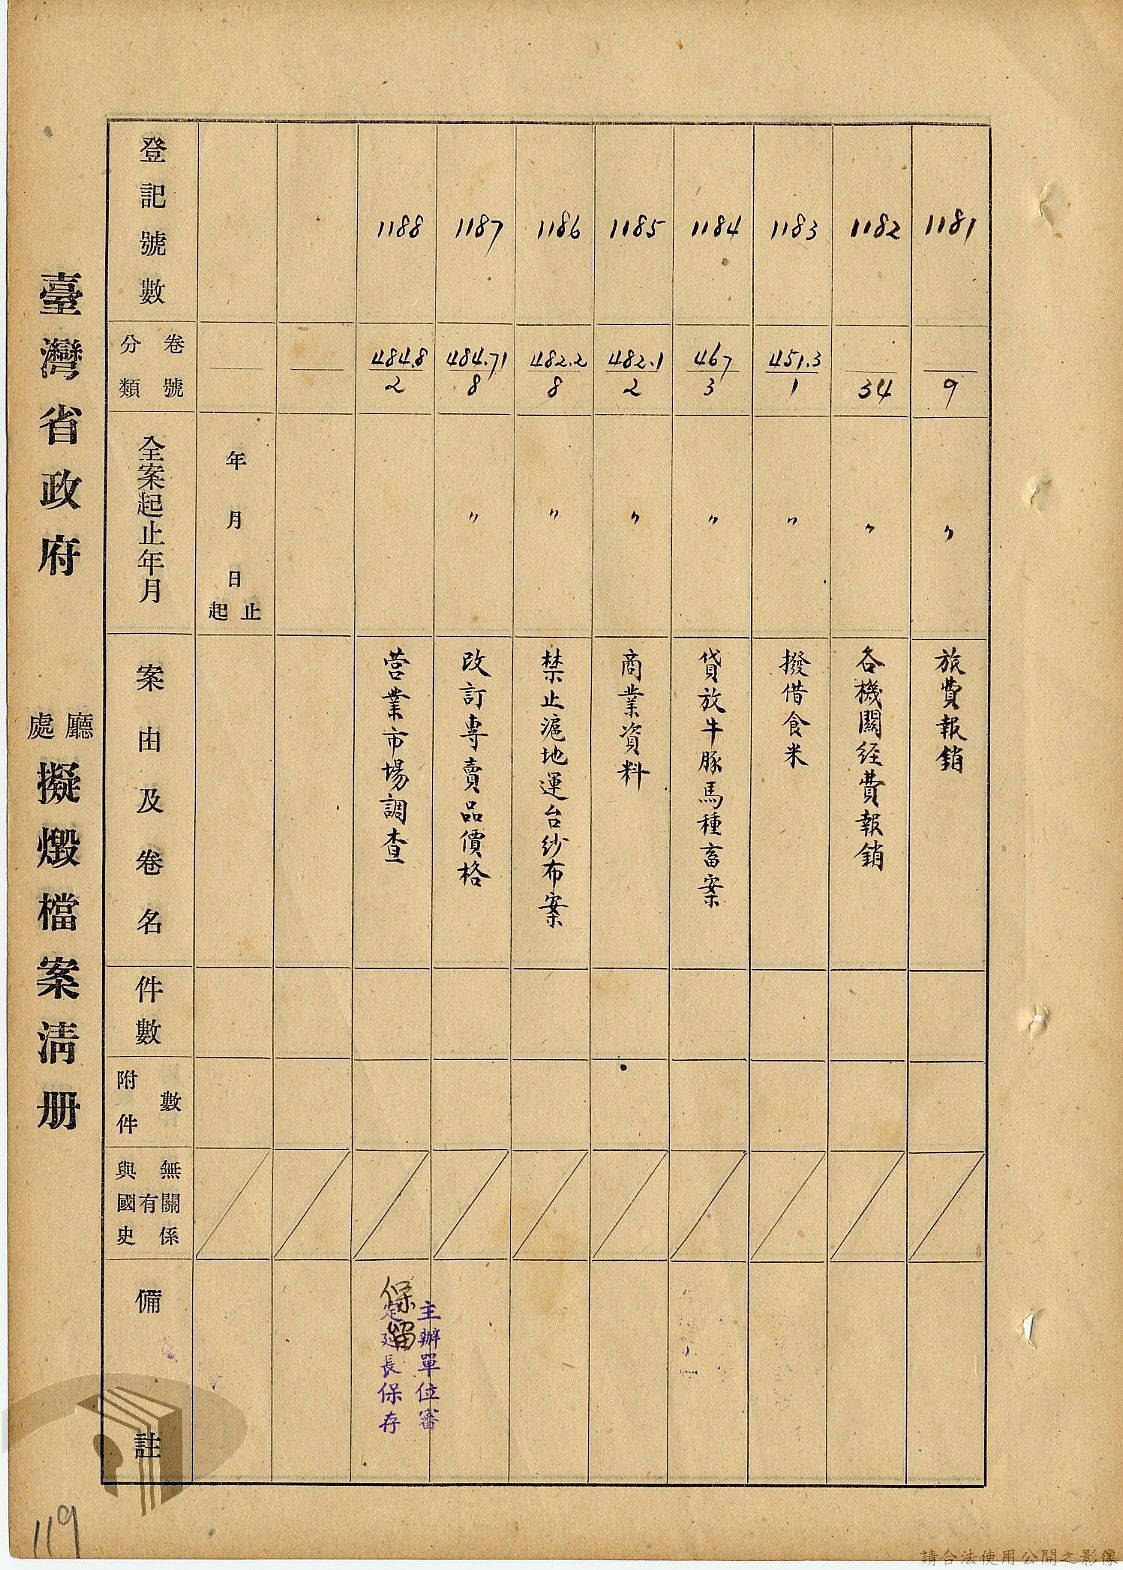 臺灣省政府 廳處 擬燬檔案清册
登記號數
卷號
分類
全案起止年月
案由及卷名
件數
附件數
與國史有無關係
備註
1181
9
〃
旅費報銷
1182
34
〃
各機關经費報銷
1183
451.3
1
〃
撥借食米
1184
467
3
〃
貸放牛豚馬種畜案
1185
482.1
2
〃
商業資料
1186
482.2
8
〃
禁止滬地運台紗布案
1187
484.71
8
〃
改訂專賣品價格
1188
484.8
2
营業市場調查
保留
主辦單位審
定延長保存
年月日
起止
119
請合法使用公開之影像